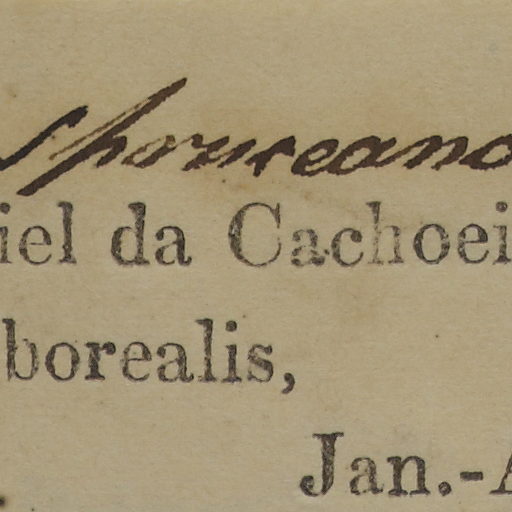 Spruceano
iel da Cachoei
borealis,
Jan.-A